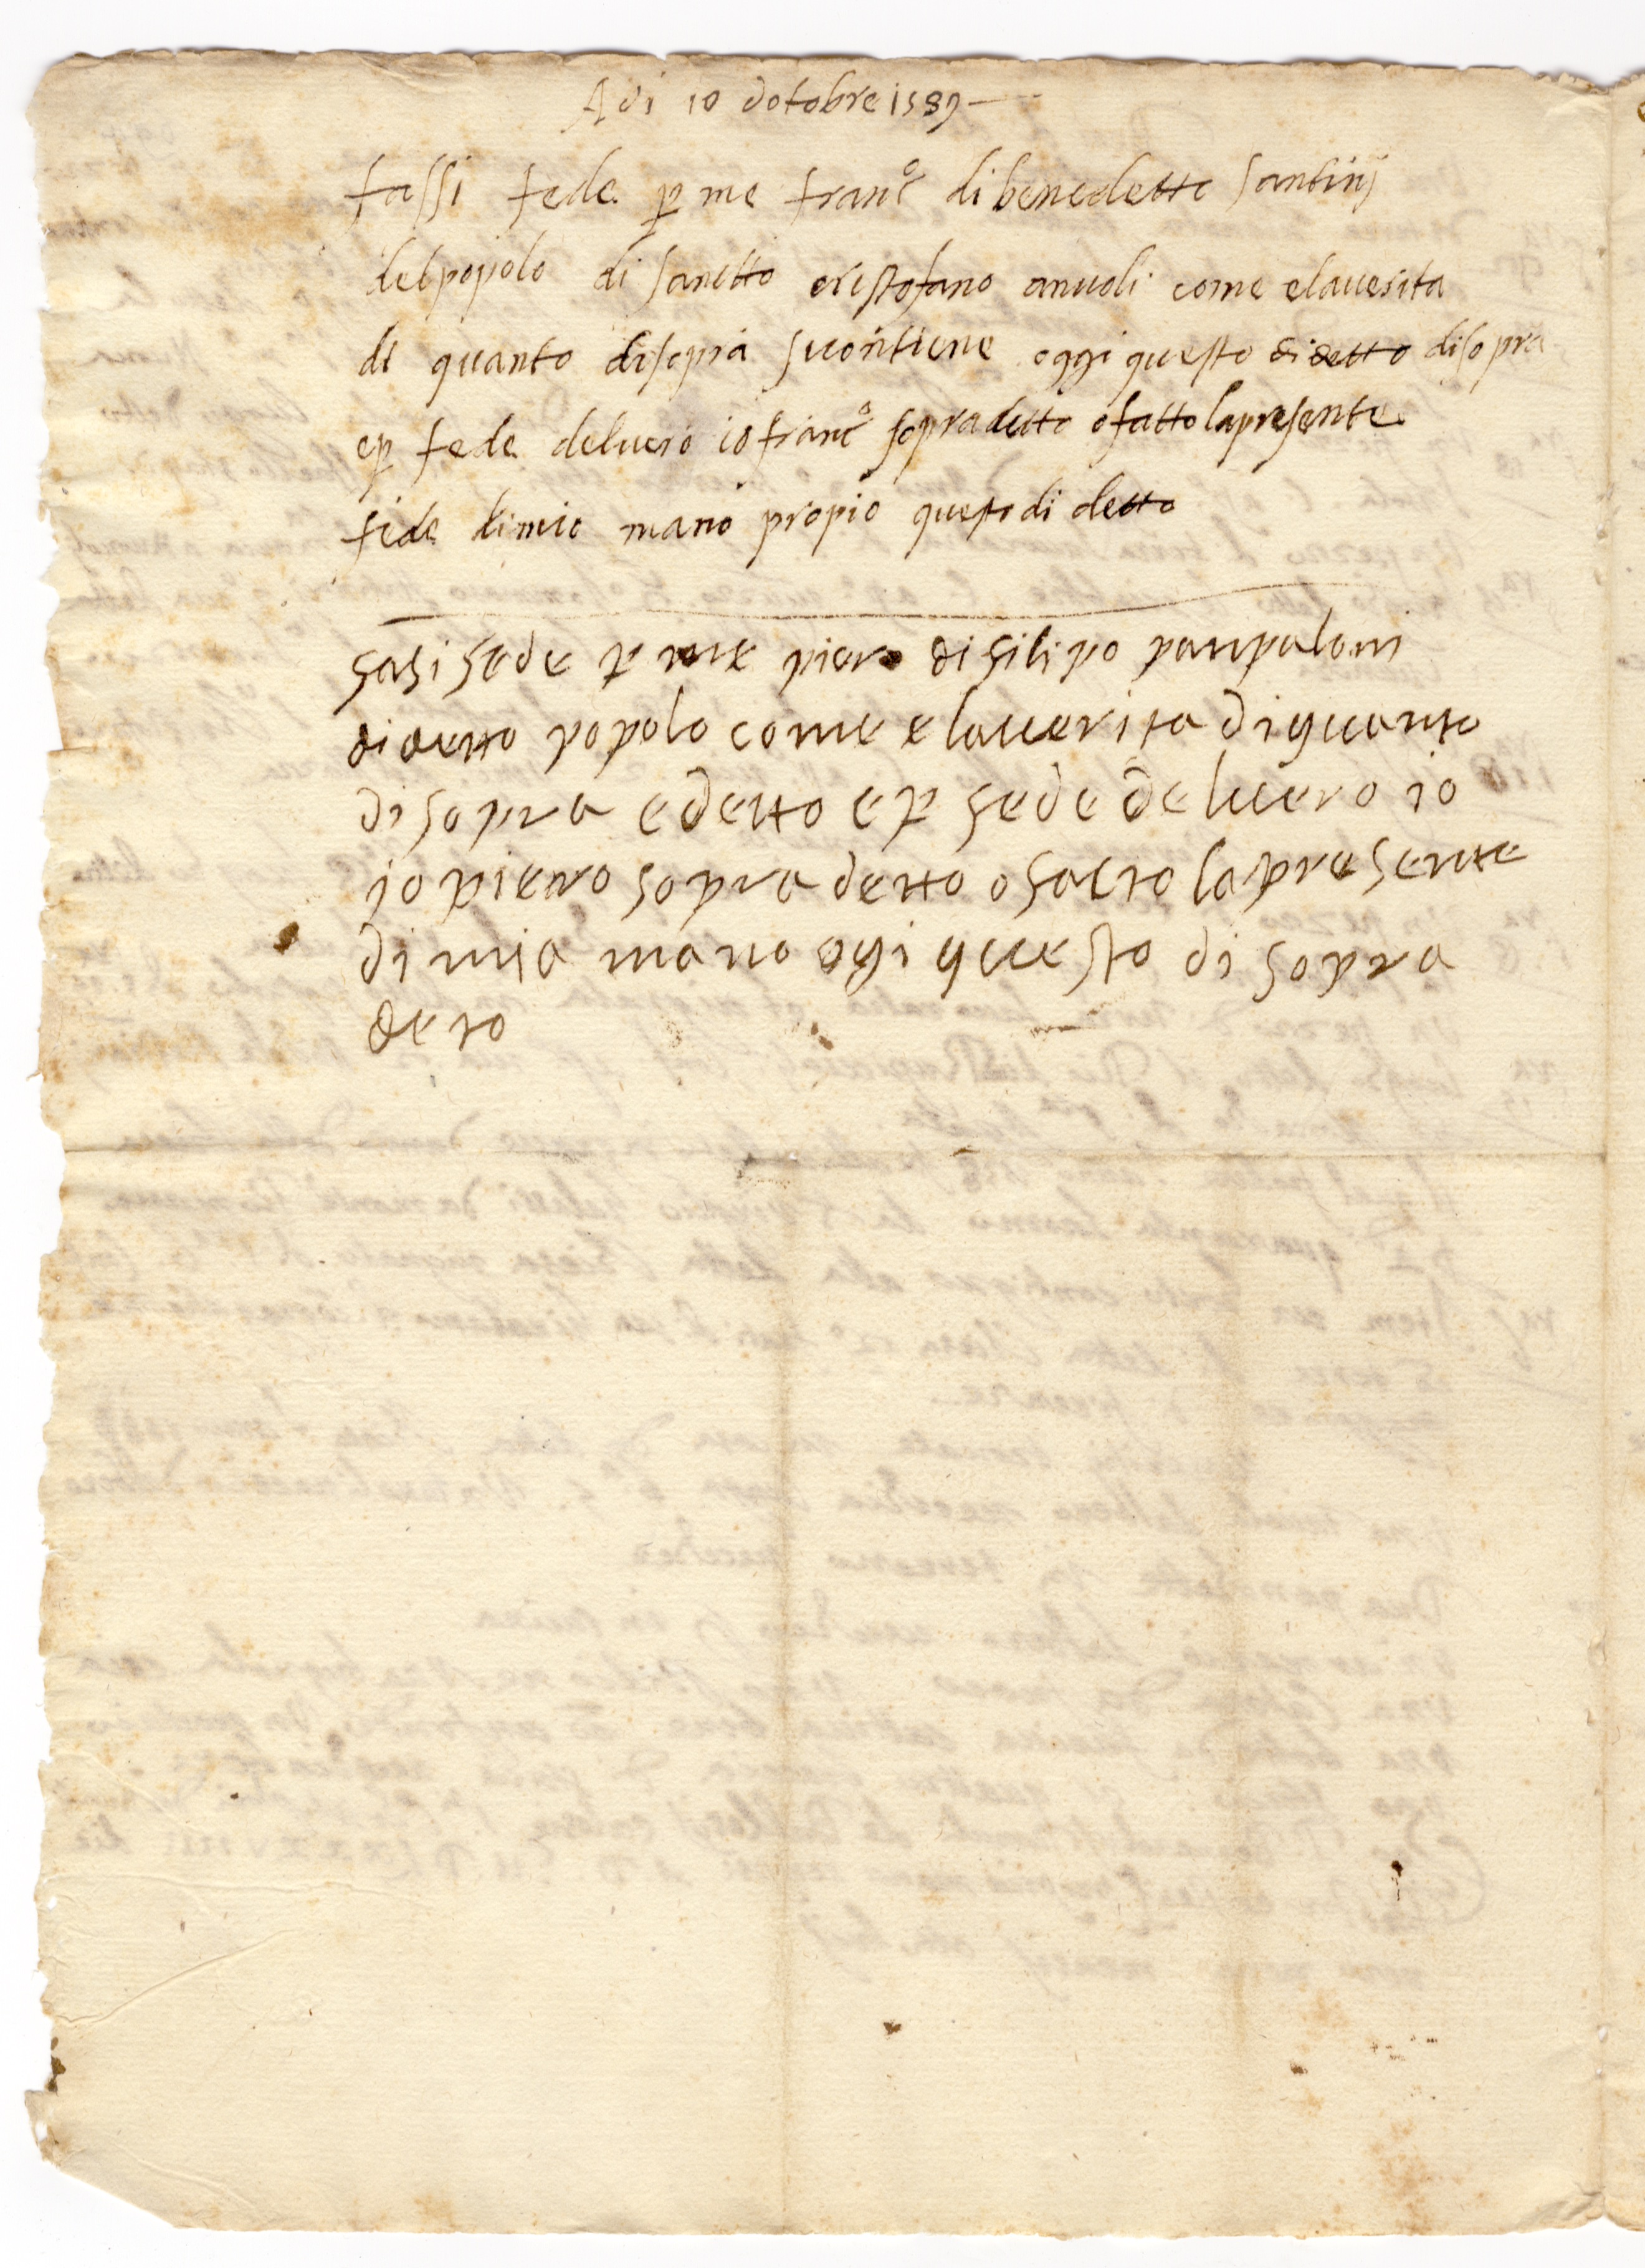 Adi 10 dotobre 1589
fassi fede p me franc° di benedetto santinj
del popolo di sanctto cristofano anuoli come elauerita
di quanto disopra sicontiene oggi questo didetto disopra
ep fede deluero io franc° sopradetto o fatto lapresente
fede dimio mano propio questo di detto
fasi fede p me piero di filipo panpaloni
didetto popolo come e lauerita diquanto
disopra edetto e p fede deluero io
io piero sopra detto o facto lapresente
dimia mano ogi questo di sopra
deto